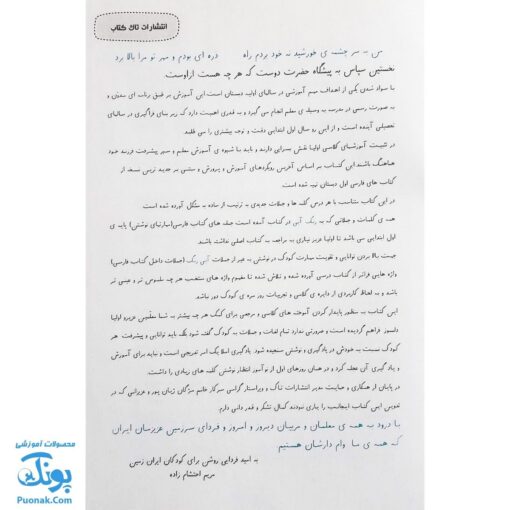 انتشارات تاک کتاب
من به سر چشمه ی خورشید نه خود بردم راه ذره ای بودم و مهر تو مرا بالا برد
نخستین سپاس به پیشگاه حضرت دوست که هر چه هست ازاوست
با سواد شدن یکی از اهداف مهم آموزشی در سالهای اولیه دبستان است. این آموزش بر طبق برنامه ای مدون و
به صورت رسمی در مدرسه به وسیله ی معلم انجام می گیرد و به قدری اهمیت دارد که زیر بنای فراگیری در سالهای
تحصیلی آینده است و از این رو سال اول ابتدایی دقت و توجه بیشتری را می طلبد
در تثبیت آموزشهای کلاسی اولیا نقش بسزایی دارند و باید با شیوه ی آموزش معلم و سیر پیشرفت فرزند خود
هماهنگ باشند. این کتاب بر اساس آخرین رویکردهای آموزش و پرورش و مبتنی بر جدید ترین نسخه از
کتاب های فارسی اول دبستان تهیه شده است.
در این کتاب متناسب با هر درس کلمه ها و جملات جدیدی به ترتیب از ساده به مشکل آورده شده است
همه ی کلمات و جملاتی که به رنگ آبی در کتاب آمده است جمله های کتاب فارسی(مهارتهای نوشتن) پایه ی
اول ابتدایی می باشد تا اولیا عزیز نیازی به مراجعه به کتاب اصلی نداشته باشند.
جهت بالا بردن توانایی و تقویت مهارت کودک در نوشتن به غیر از جملات آبی رنگ (جملات داخل کتاب فارسی)
واژه هایی فراتر از کتاب درسی آورده شده و تلاش شده تا مفهوم واژه های منتخب هر چه ملموس تر و عینی تر
باشد و به لحاظ کاربردی از دایره ی کلامی و تجربیات روز مره ی کودک دور نباشد
این کتاب به منظور پایدار کردن آموخته های کلاسی و مرجعی برای کمک هر چه بیشتر به شما معلمین عزیزو اولیا
دلسوز فراهم گردیده است و ضرورتی ندارد تمام لغات و جملات به کودک گفته شود بلکه باید توانایی و پیشرفت هر
کودک نسبت به خودش در یادگیری و نوشتن سنجیده شود. یادگیری املا یک امر تدریجی است و نباید برای آموزش
و یاد گیری آن عجله کرد و در همان روزهای اول از نوآموز انتظار نوشتن کلمه های زیادی را داشت.
در پایان از همکاری و حمایت مدیر انتشارات تاک و ویراستار گرامی سرکار خانم مژگان ژیان پور و عزیزانی که در
تدوین این کتاب اینجانب را یاری نمودند کمال تشکر و قدر دانی دارم.
با درود به همه ی معلمان و مربیان دیروز و امروز و فردای سرزمین عزیزمان ایران
که همه ی ما وام دارشان هستیم.
به امید فردایی روشن برای کودکان ایران زمین
مریم احتشام زاده
محصولات آموزشی
پونک
Puonak.Com